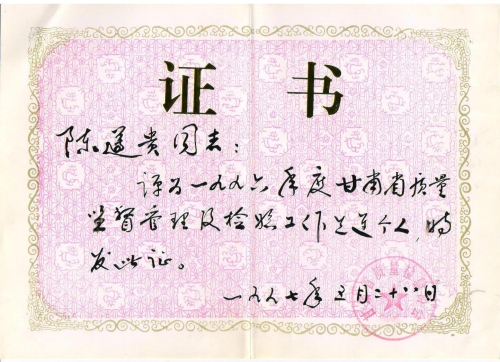 证书
陈遂贵同志：
评为一九九六年度甘肃省质量
监督管理及检验工作先进个人，特
发此证。
一九九七年五月二十八日